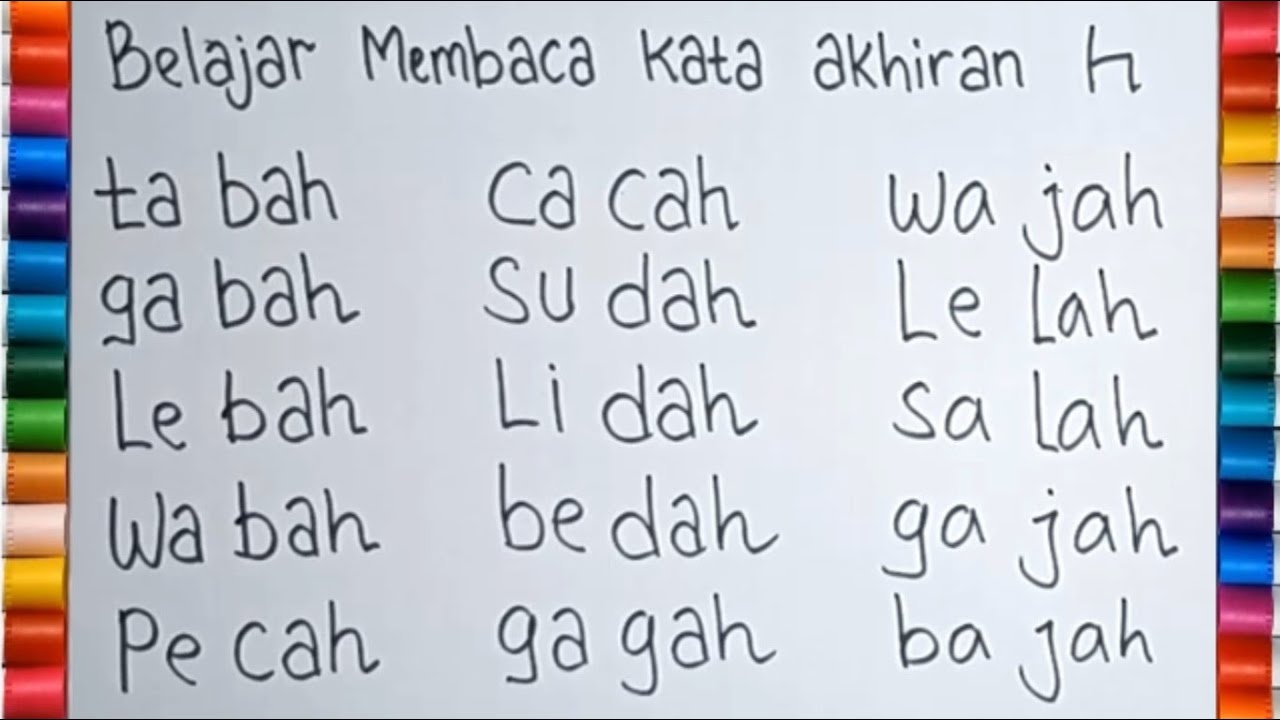 Belajar Membaca kata akhiran h
ta bah ca cah wa jah
ga bah su dah Le Lah
Le bah Li dah sa Lah
wa bah be dah ga jah
Pe cah ga gah ba jah